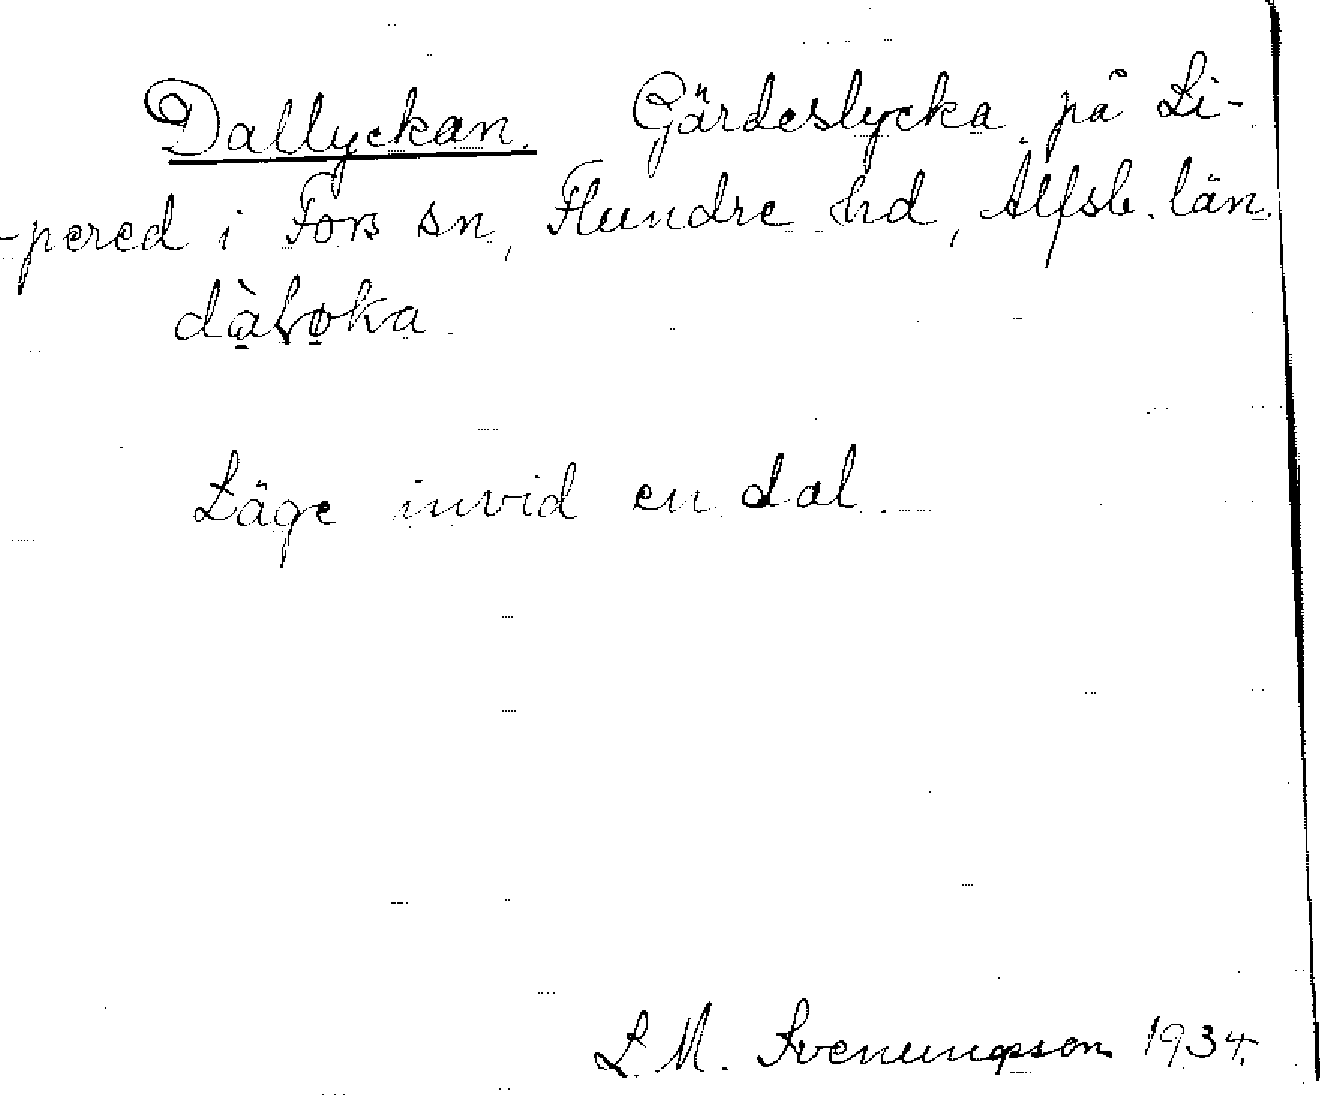 Dallyckan. Gärdeslycka på Li-
-pered i Fors sn, Flundre hd, Älfsb. län.
Läge invid en dal.
L. M. Svenungsson 1934.